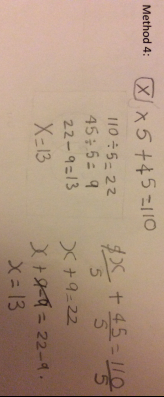 Method 4:
X × 5 + 45 = 110
110 ÷ 5 = 22
45 ÷ 5 = 9
22 - 9 = 13
X = 13
5x/5 + 45/5 = 110/5
x + 9 = 22
x + 9 - 9 = 22 - 9.
x = 13